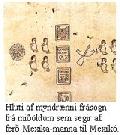 Hluti af myndrænni frásögn
frá miðöldum sem segir af
ferð Mexíka-manna til Mexíkó.